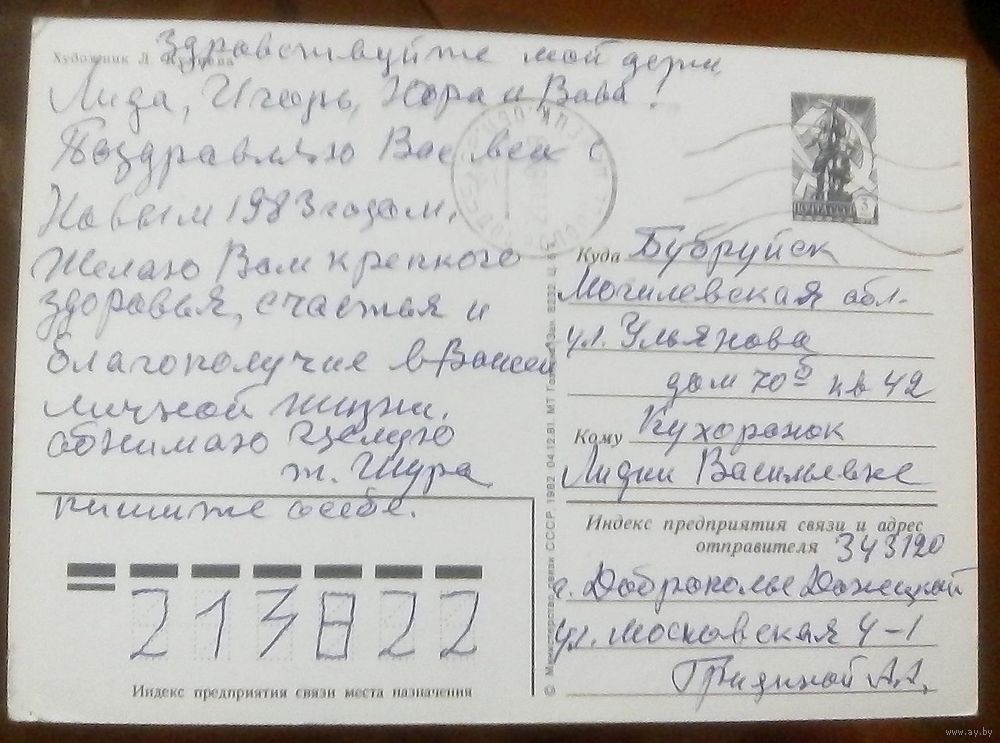 Художник Л.
Здравствуйте мои дети
Лида, Игорь, Юра и Вова!
Поздравляю Вас всех с
Новым 1983 годом.
Желаю Вам крепкого
здоровья, счастья и
благополучие в Вашей
личной жизни.
обнимаю целую
т. Шура
пишите о себе.
Куда Бубруйск
Могилевская обл.
ул. Ульянова
дом 70б кв 42
Кому Кухоронок
Лидии Васильевне
Индекс предприятия связи и адрес
отправителя 343120
г. Доброполье Донецкой
ул. Московская 4-1
Гридиной А.А.
213822
Индекс предприятия связи места назначения
© Министерство связи СССР, 1982 04.12.81. МТ Гознака. Зак.
ПОЧТА СССР 3
www.ay.by